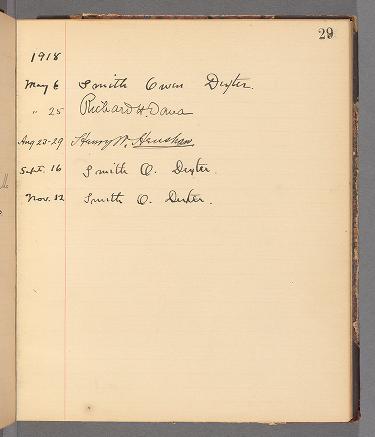 29
1918
May 6 Smith Owen Dexter.
" 25 Richard H Dana
Aug 23-29 Henry W. Henshaw.
Sept. 16 Smith O. Dexter.
Nov. 12 Smith O. Dexter.